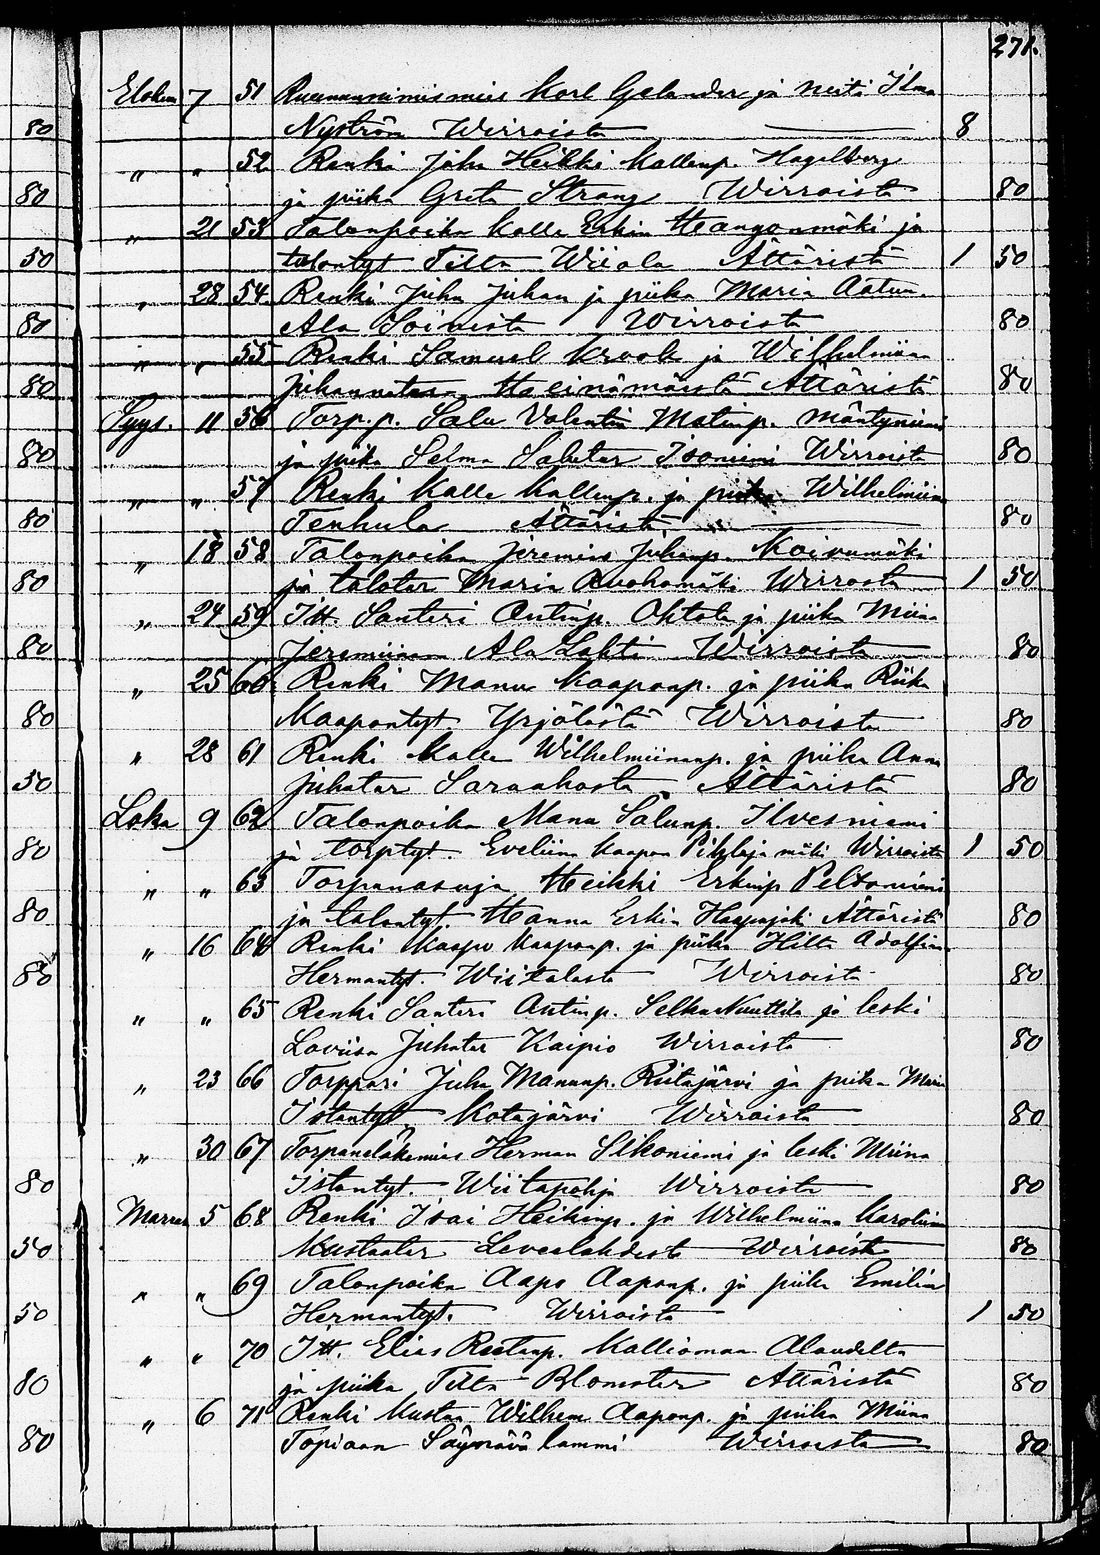 271.
Elokuu 7 51 Ruununnimismies Karl Gelander ja neiti Ilma
80 Nyström Wirroista 8
" " 52 Renki Juha Heikki Kallenp. Hagelberg
80 ja piika Greta Strang Wirroista 80
" 21 53 Talonpoika Kalle Erkin Hangonmäki ja
50 talontyt Tilta Wiiola Ättäristä 1 50
" 28 54 Renki Juha Juhan ja piika Maria
80 Ala Soinista Wirroista 80
" " 55 Renki Samuel Krook ja Wilhelmiina
80 Juhannatar Ättäristä 80
Syys. 11 56 Torp.p. Salu Valentin Matinp. Mäntyniemi
80 ja piika Selma Isoniemi Wirroista 80
" " 57 Renki Kalle Kallenp. ja piika Wilhelmiina
80 Tenhula Ättäristä 80
" 18 58 Talonpoika Jeremias Juhanp. Koivumäki
80 ja taloter Maria Ruohomäki Wirroista 1 50
" 24 59 Itt. Santeri Antinp. Ohtola ja piika Miina
80 Jeremiaan Ala Lahti Wirroista 80
" 25 60 Renki Manu Kaaponp. ja piika Riika
80 Kaapontyt Yrjölästä Wirroista 80
" 28 61 Renki Kalle Wilhelmiinanp. ja piika Anna
50 Juhatar Ättäristä 80
Loka 9 62 Talonpoika Manu Salunp. Ilvesniemi
80 ja torptyt. Eveliina Kaapon Pihlajamäki Wirroista 1 50
" " 63 Torpanasuja Heikki Erkinp Peltoniemi
80 ja talontyt. Hanna Erkin Haapajoki Ättäristä 80
" 16 64 Renki Kaapo Kaaponp. ja piika Hilta Adolfina
80 Hermantyt. Wiitalasta Wirroista 80
" " 65 Renki Santeri Antinp. Selkee Nuuttila ja leski
Loviisa Juhatar Kaipio Wirroista 80
" 23 66 Torppari Juha Manunp. Riitajärvi ja piika Maria
Istantyt Kotajärvi Wirroista 80
" 30 67 Torpaneläkemies Herman Silkoniemi ja leski Miina
80 Istantyt. Wiitapohja Wirroista 80
Marras 5 68 Renki Isai Heikinp. ja Wilhelmiina Karoliina
50 Kustaatar Wirroista 80
" " 69 Talonpoika Aapo Aaponp. ja piika Emilia
50 Hermantyt. Wirroista 1 50
" " 70 Itt. Elias Kalliomaa Alaudelta
80 ja piika Tilta Blomster Ättäristä 80
" 6 71 Renki Kustaa Wilhem Aaponp. ja piika Miina
80 Topiaan Säynävälammi Wirroista 80